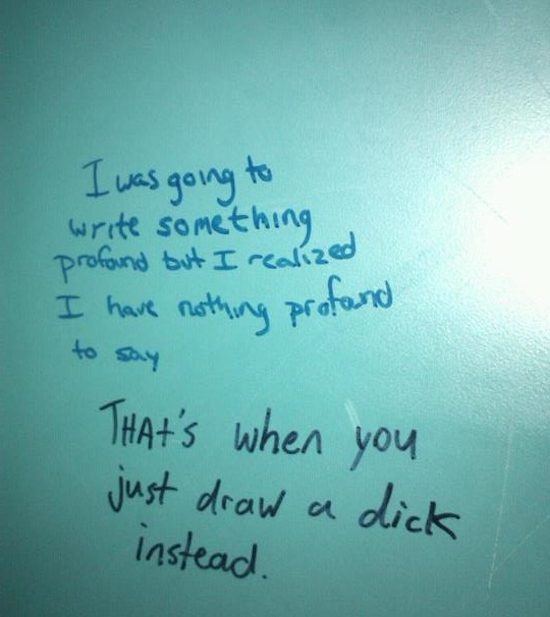 I was going to
write something
profound but I realized
I have nothing profound
to say
THAt's when you
just draw a dick
instead.